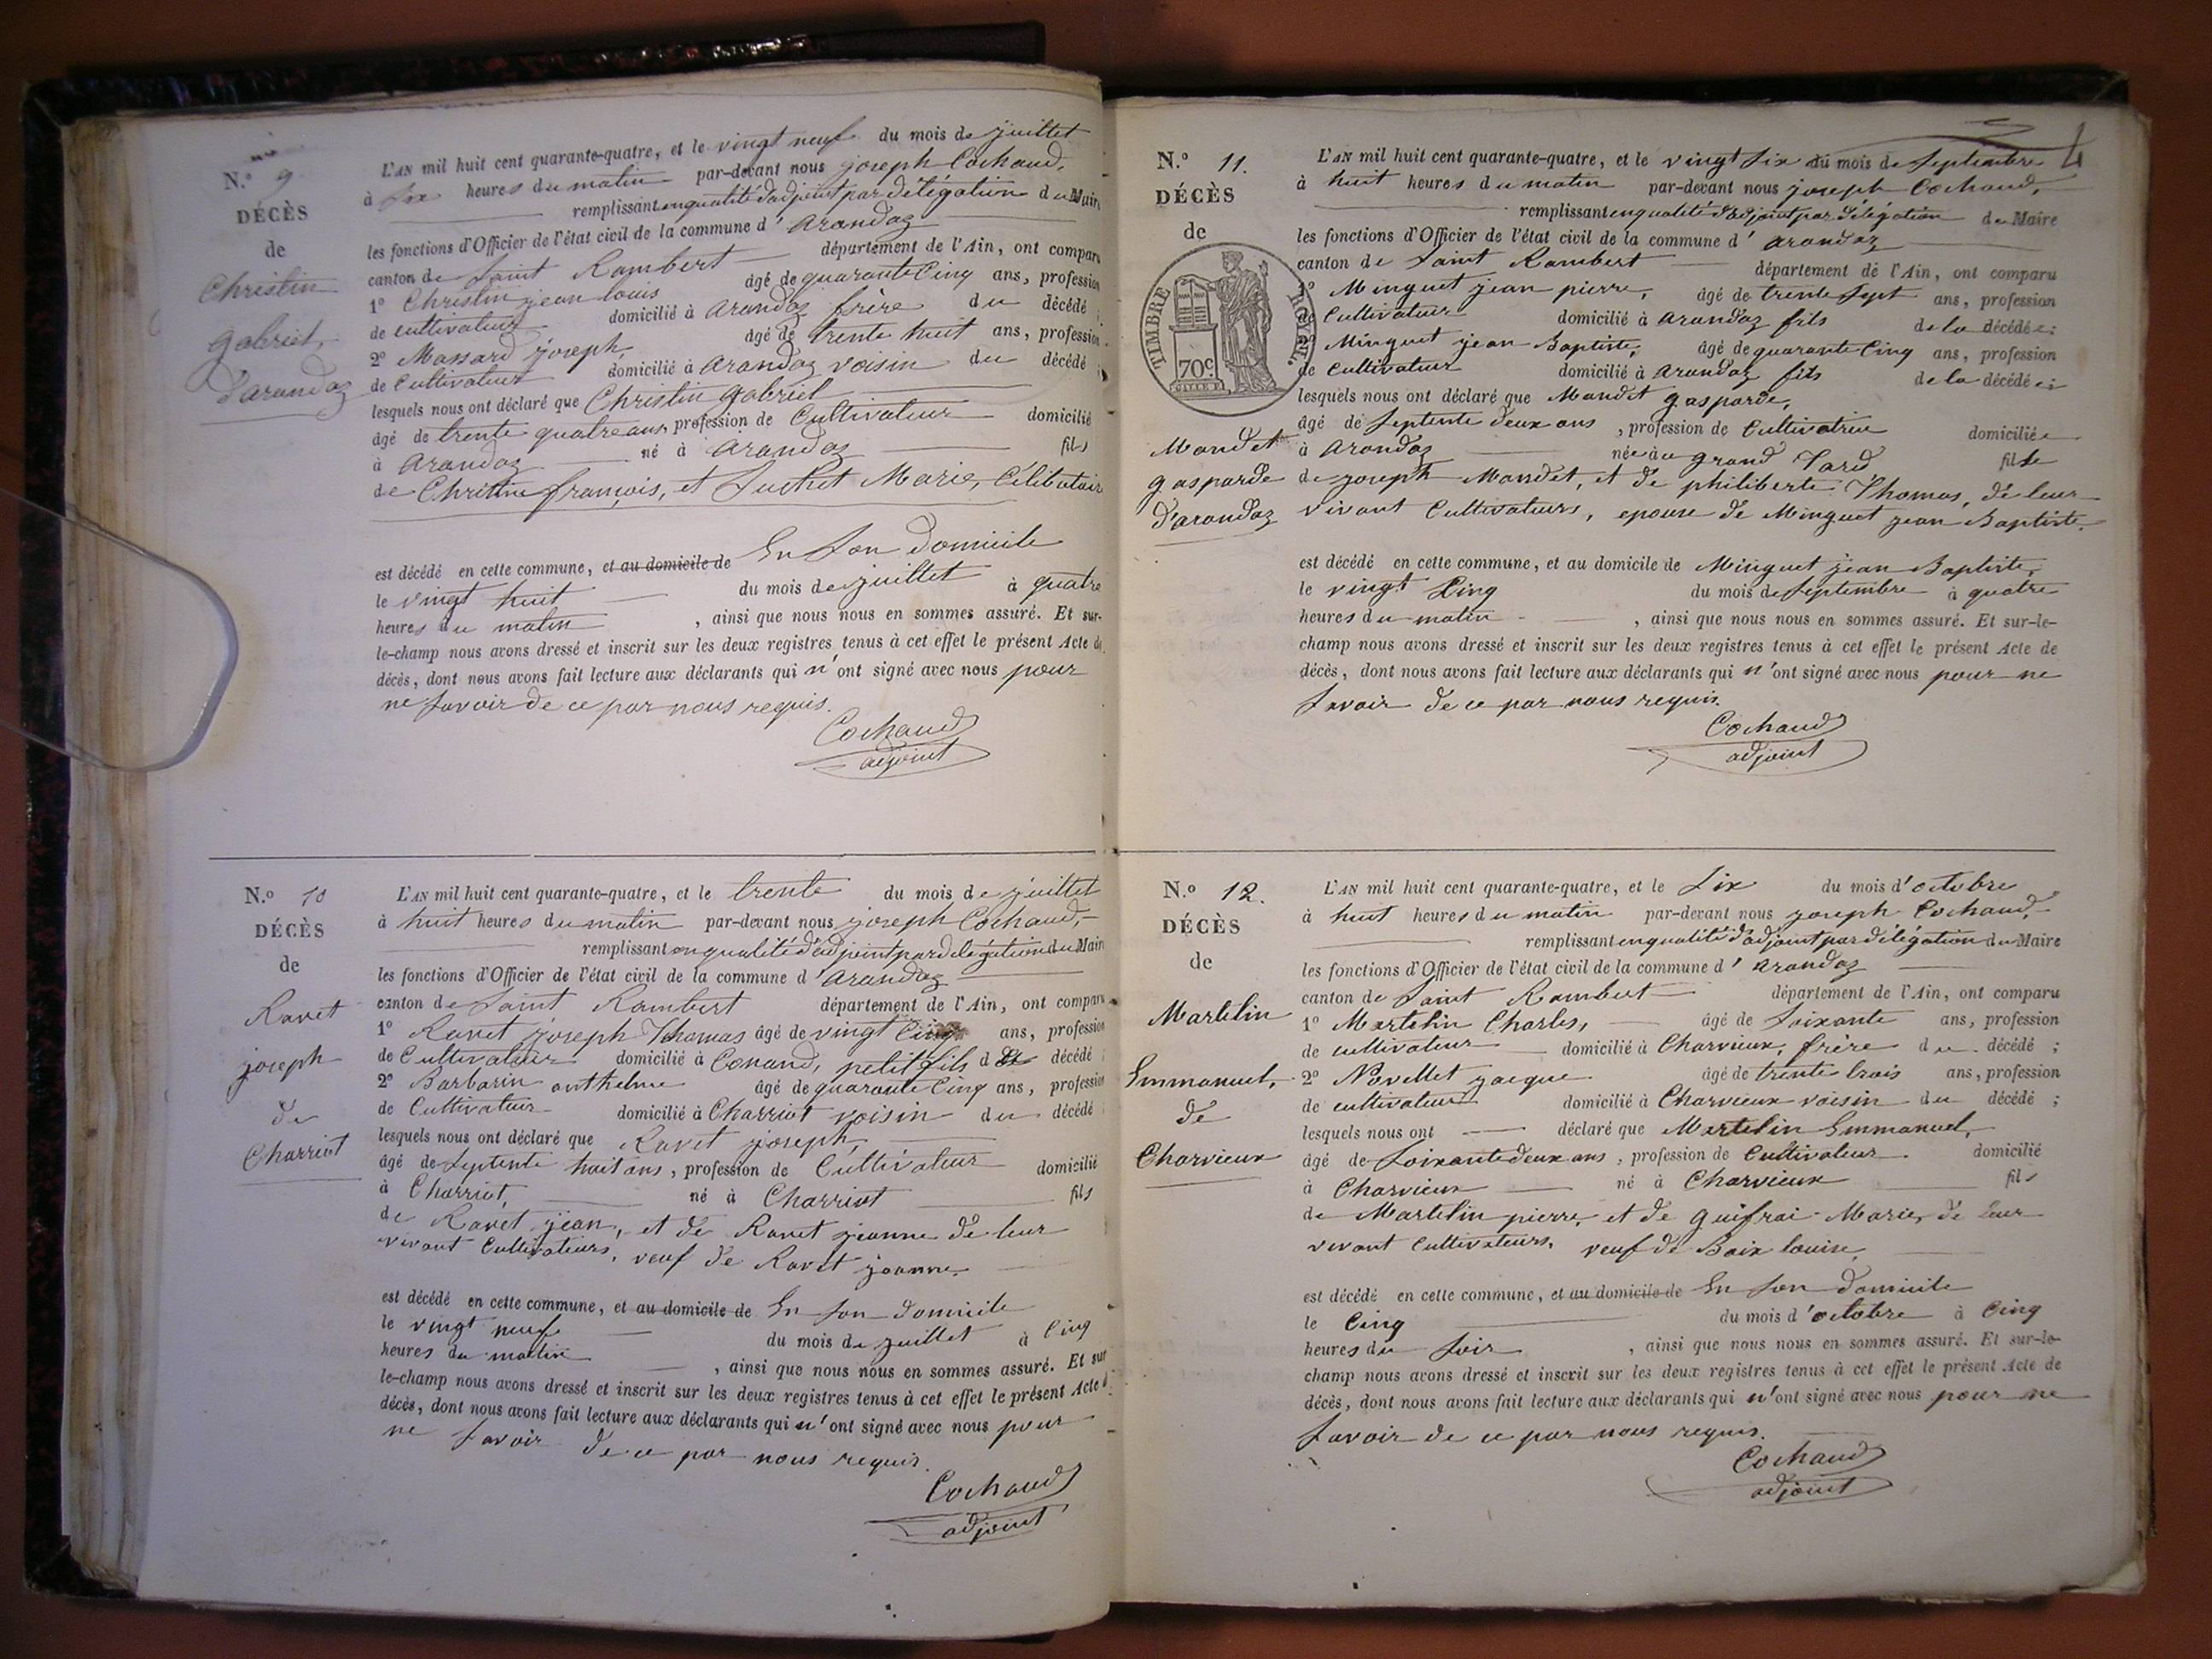 N.º 9
DÉCÈS
de
Christin
gabriel,
d'arandaz
L'AN mil huit cent quarante-quatre, et le vingt neuf du mois de juillet
à Six heures du matin par-devant nous joseph Cochaud,
remplissant en qualité d'adjoint par délégation du Maire
les fonctions d'Officier de l'état civil de la commune d'arandaz
canton de Saint Rambert département de l'Ain, ont comparu
1º Christin jean louis âgé de quarante Cinq ans, profession
de cultivateur domicilié à arandaz frère du décédé ;
2º Massard joseph, âgé de trente huit ans, profession
de Cultivateur domicilié à arandaz voisin du décédé ;
lesquels nous ont déclaré que Christin gabriel
âgé de trente quatre ans, profession de Cultivateur domicilié
à arandaz né à arandaz fils
de Christin françois, et Luchet Marie, Célibataire
est décédé en cette commune, et au domicile de En Son Domicile
le vingt huit du mois de juillet à quatre
heures du matin , ainsi que nous nous en sommes assuré. Et sur-
le-champ nous avons dressé et inscrit sur les deux registres tenus à cet effet le présent Acte de
décès, dont nous avons fait lecture aux déclarants qui n'ont signé avec nous pour
ne Savoir de ce par nous requis.
Cochaud
adjoint
N.º 10
DÉCÈS
de
Ravet
joseph
de
Charriot
L'AN mil huit cent quarante-quatre, et le trente du mois de juillet
à huit heures du matin par-devant nous joseph Cochaud,
remplissant en qualité d'adjoint par délégation du Maire
les fonctions d'Officier de l'état civil de la commune d'arandaz
canton de Saint Rambert département de l'Ain, ont comparu
1º Ravet joseph Thomas âgé de vingt Cinq ans, profession
de Cultivateur domicilié à Conand, petit fils du décédé ;
2º Barbarin anthelme âgé de quarante Cinq ans, profession
de Cultivateur domicilié à Charriot voisin du décédé ;
lesquels nous ont déclaré que Ravet joseph,
âgé de Septente huit ans, profession de Cultivateur domicilié
à Charriot, né à Charriot fils
de Ravet jean, et de Ravet jeanne de leur
vivant Cultivateurs, veuf de Ravet jeanne.
est décédé en cette commune, et au domicile de En Son Domicile
le vingt neuf du mois de juillet à Cinq
heures du matin , ainsi que nous nous en sommes assuré. Et sur
le-champ nous avons dressé et inscrit sur les deux registres tenus à cet effet le présent Acte d
décès, dont nous avons fait lecture aux déclarants qui n'ont signé avec nous pour
ne Savoir de ce par nous requis.
Cochaud
adjoint
N.º 11.
DÉCÈS
de
TIMBRE ROYAL.
70c
Mandet
gasparde
d'arandaz
L'AN mil huit cent quarante-quatre, et le vingt Six du mois de Septembre
à huit heures du matin par-devant nous joseph Cochaud,
remplissant en qualité d'adjoint par délégation de Maire
les fonctions d'Officier de l'état civil de la commune d'arandaz
canton de Saint Rambert département de l'Ain, ont comparu
1º Minguet jean pierre, âgé de trente Sept ans, profession
de Cultivateur domicilié à arandaz fils de la décédée ;
Minguet jean Baptiste, âgé de quarante Cinq ans, profession
de Cultivateur domicilié à arandaz fils de la décédée ;
lesquels nous ont déclaré que Mandet gasparde,
âgé de Septente deux ans, profession de Cultivatrice domiciliée
à Arandaz née au grand Tard fille
de joseph Mandet, et de philiberte Thomas, de leur
vivant Cultivateurs, epouse de Minguet jean Baptiste.
est décédé en cette commune, et au domicile de Minguet jean Baptiste,
le vingt Cinq du mois de Septembre à quatre
heures du matin , ainsi que nous nous en sommes assuré. Et sur-le-
champ nous avons dressé et inscrit sur les deux registres tenus à cet effet le présent Acte de
décès, dont nous avons fait lecture aux déclarants qui n'ont signé avec nous pour ne
Savoir de ce par nous requis.
Cochaud
adjoint
N.º 12.
DÉCÈS
de
Martelin
Emmanuel,
de
Charvieux
L'AN mil huit cent quarante-quatre, et le Six du mois d'octobre
à huit heures du matin par-devant nous joseph Cochaud,
remplissant en qualité d'adjoint par délégation du Maire
les fonctions d'Officier de l'état civil de la commune d'arandaz
canton de Saint Rambert département de l'Ain, ont comparu
1º Martelin Charles, âgé de Soixante ans, profession
de cultivateur domicilié à Charvieux, frère du décédé ;
2º Novellet jacque âgé de trente trois ans, profession
de cultivateur domicilié à Charvieux voisin du décédé ;
lesquels nous ont déclaré que Martelin Emmanuel,
âgé de Soixante deux ans, profession de Cultivateur. domicilié
à Charvieux né à Charvieux fils
de Martelin pierre, et de guifrai Marie, de leur
vivant Cultivateurs, veuf de Baix louise.
est décédé en cette commune, et au domicile de En Son Domicile
le Cinq du mois d'octobre à Cinq
heures du Soir , ainsi que nous nous en sommes assuré. Et sur-le-
champ nous avons dressé et inscrit sur les deux registres tenus à cet effet le présent Acte de
décès, dont nous avons fait lecture aux déclarants qui n'ont signé avec nous pour ne
Savoir de ce par nous requis.
Cochaud
adjoint